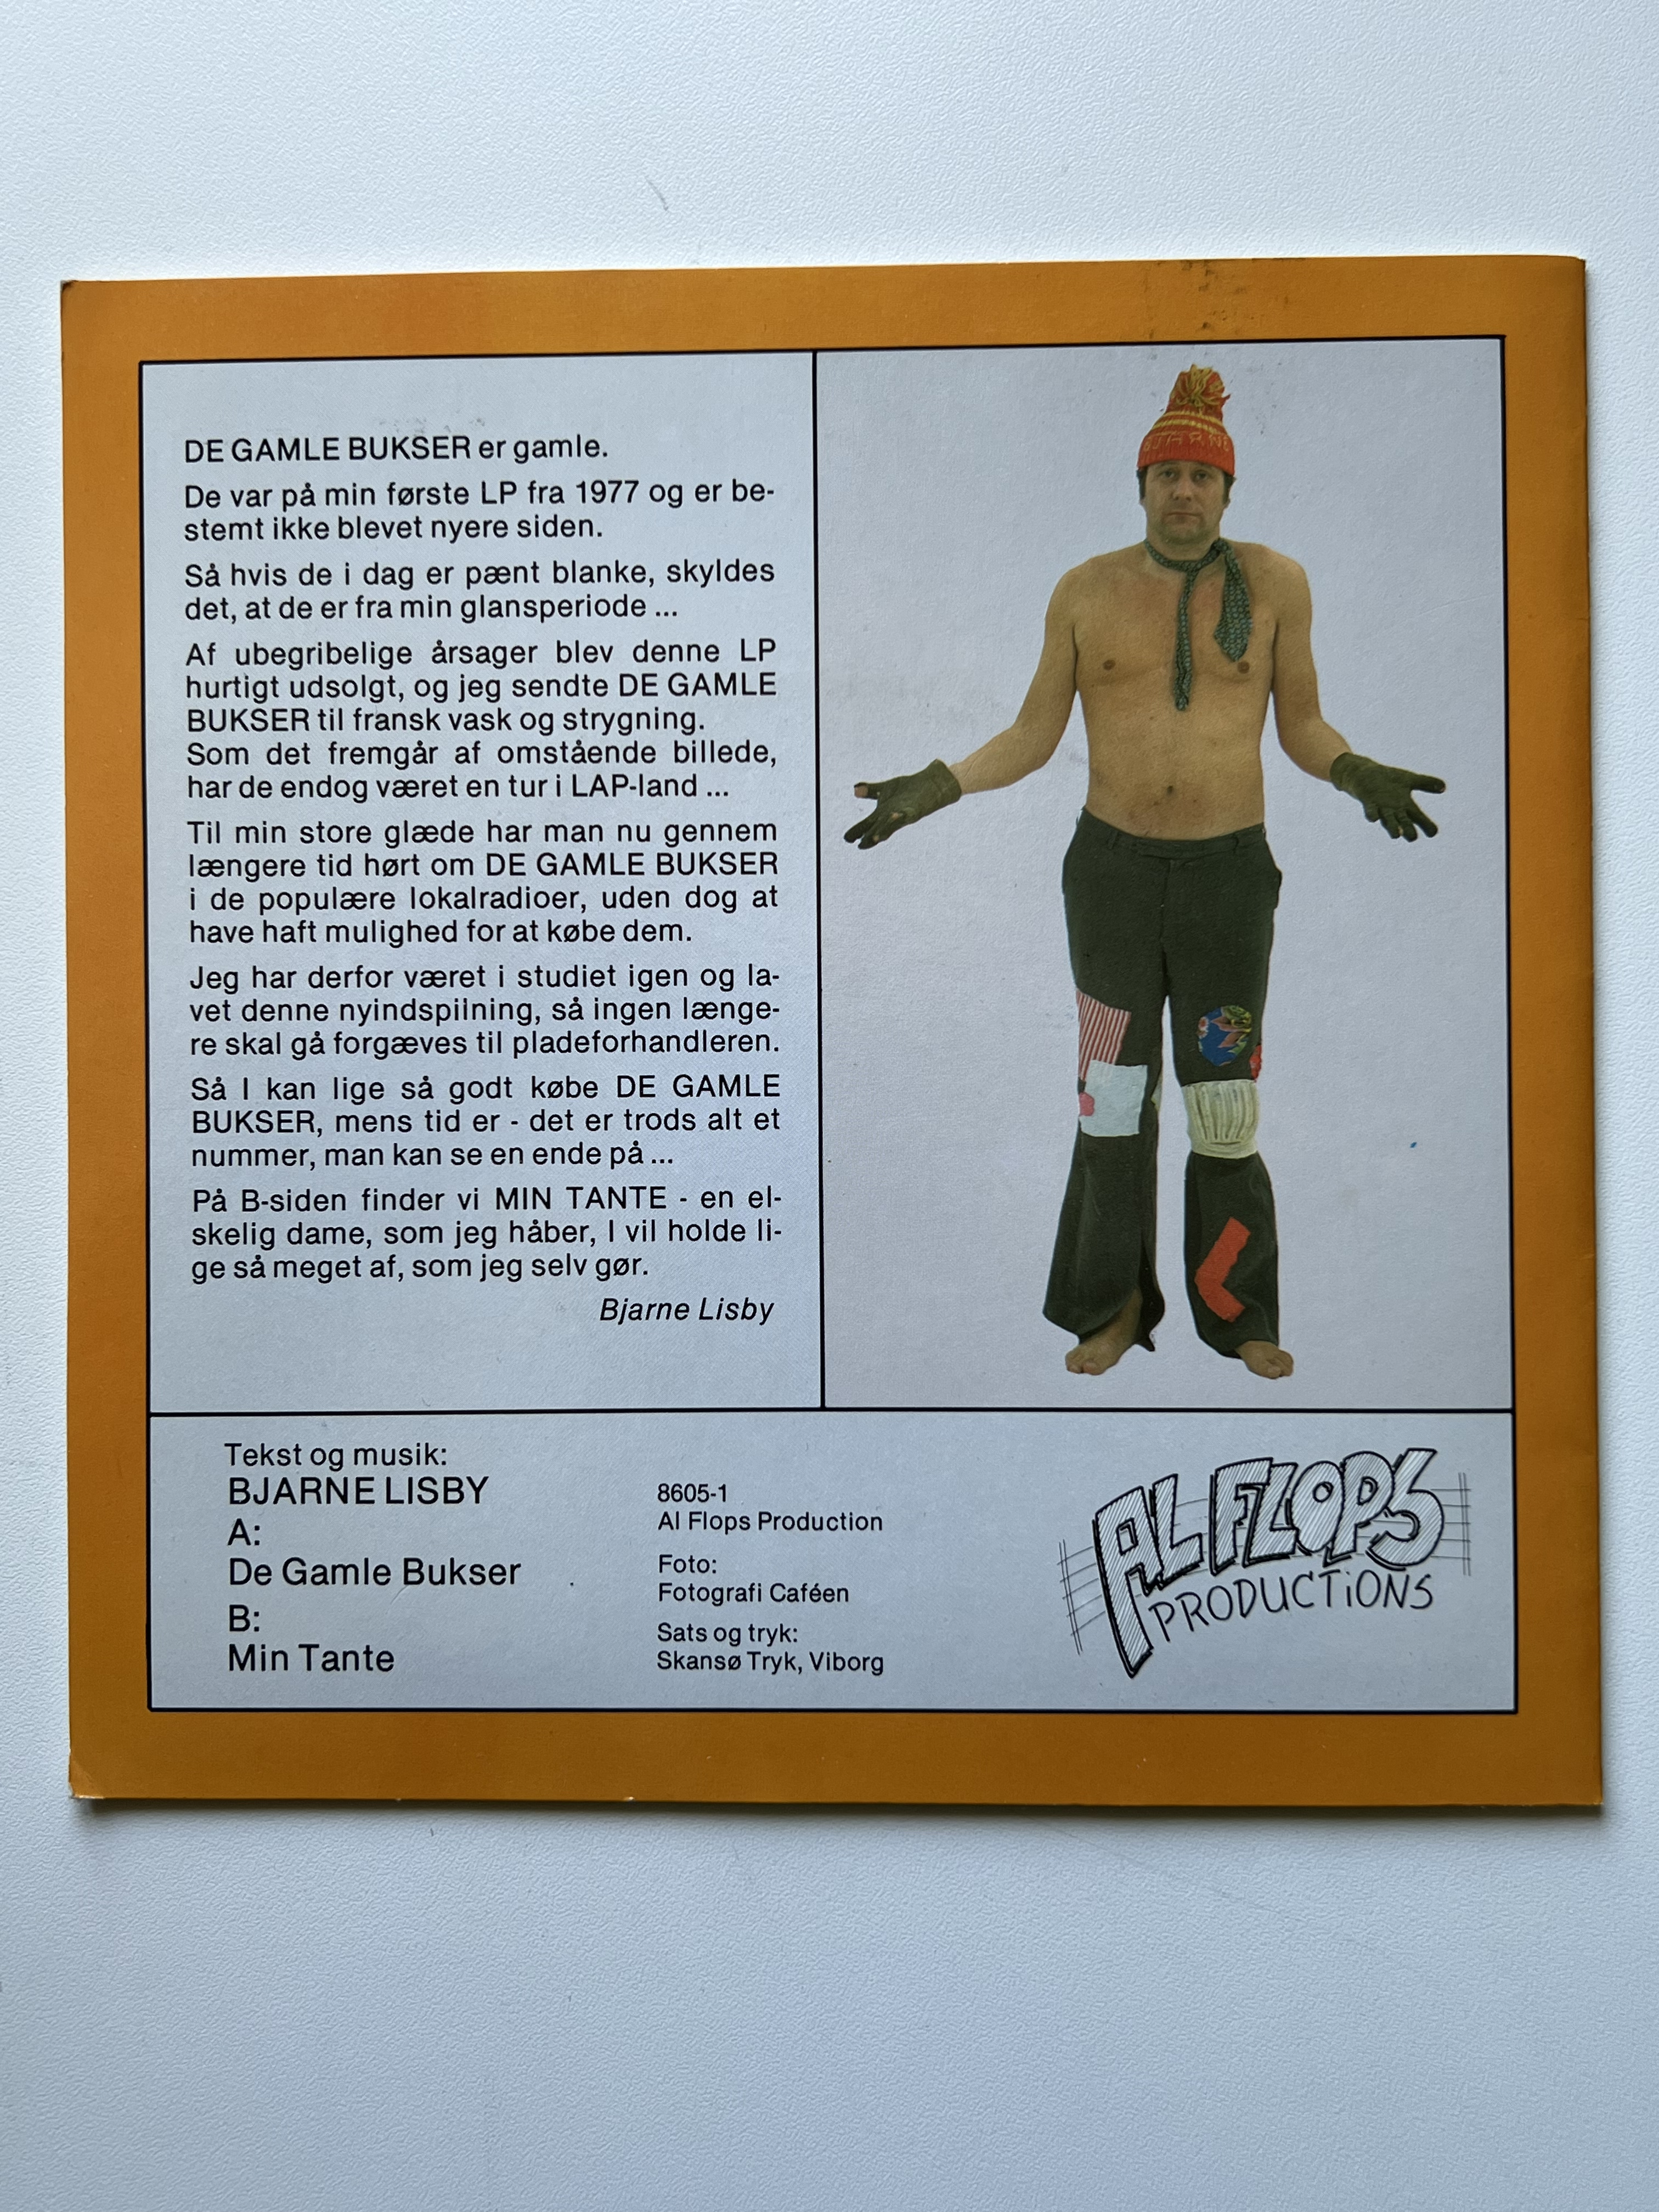 DE GAMLE BUKSER er gamle.
De var på min første LP fra 1977 og er be-
stemt ikke blevet nyere siden.
Så hvis de i dag er pænt blanke, skyldes
det, at de er fra min glansperiode ...
Af ubegribelige årsager blev denne LP
hurtigt udsolgt, og jeg sendte DE GAMLE
BUKSER til fransk vask og strygning.
Som det fremgår af omstående billede,
har de endog været en tur i LAP-land ...
Til min store glæde har man nu gennem
længere tid hørt om DE GAMLE BUKSER
i de populære lokalradioer, uden dog at
have haft mulighed for at købe dem.
Jeg har derfor været i studiet igen og la-
vet denne nyindspilning, så ingen længe-
re skal gå forgæves til pladeforhandleren.
Så I kan lige så godt købe DE GAMLE
BUKSER, mens tid er - det er trods alt et
nummer, man kan se en ende på ...
På B-siden finder vi MIN TANTE - en el-
skelig dame, som jeg håber, I vil holde li-
ge så meget af, som jeg selv gør.
Bjarne Lisby
Tekst og musik:
BJARNE LISBY
A:
De Gamle Bukser
B:
Min Tante
8605-1
Al Flops Production
Foto:
Fotografi Caféen
Sats og tryk:
Skansø Tryk, Viborg
AL FLOPS
PRODUCTiONS